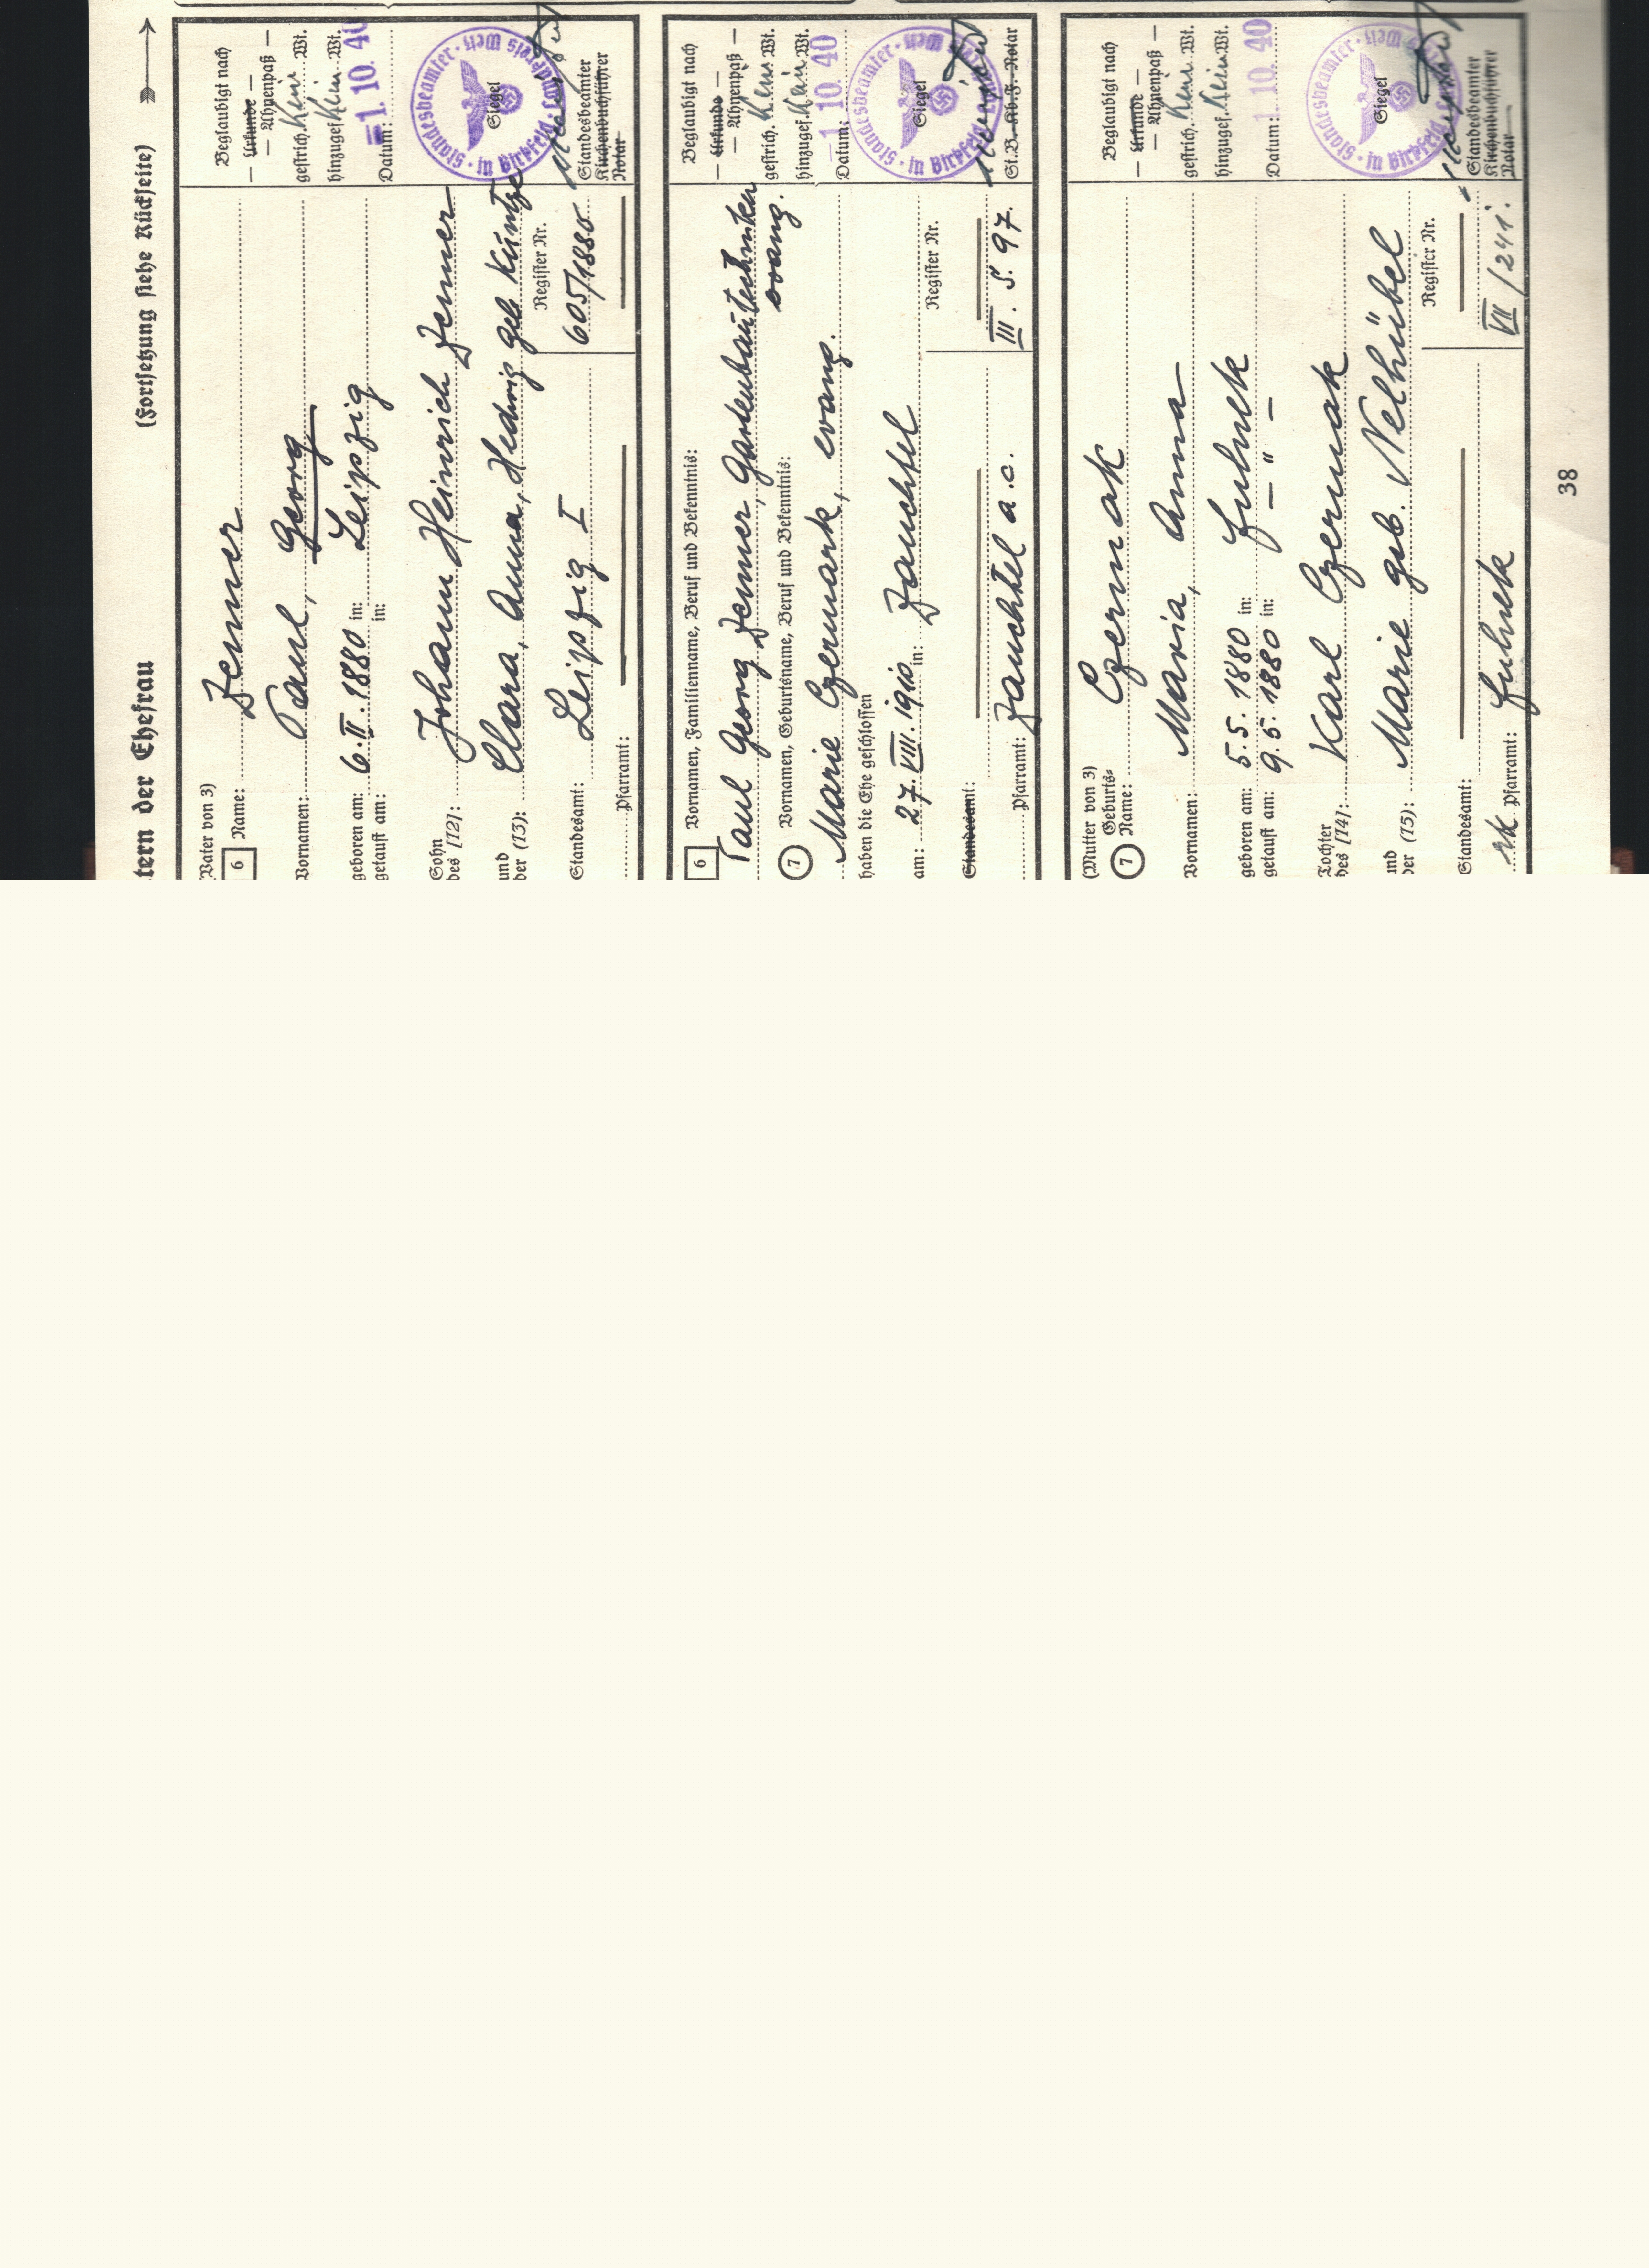 tern der Ehefrau (Fortsetzung siehe Rückseite)
(Vater von 3)
6 Name: Jenner
Vornamen: Paul, Georg
geboren am: 6.II.1880 in: Leipzig
getauft am: in:
Sohn
des [12]: Johann Heinrich Jenner
und
der (13): Clara, Anna, Hedwig geb Kuntze
Standesamt: Leipzig I
Register Nr.
605/1880
Pfarramt:
Beglaubigt nach
— Urkunde —
— Ahnenpaß —
gestrich. Kein Wt.
hinzugef. Kein Wt.
Datum: 1. 10. 40
Standesbeamter in Birkfeld Landkreis Weiz
Siegel
Standesbeamter
Kirchenbuchführer
Notar
6 Vornamen, Familienname, Beruf und Bekenntnis:
Paul Georg Jenner, Gartenbautechniker
evang.
7 Vornamen, Geburtsname, Beruf und Bekenntnis:
Marie Czermark, evang.
haben die Ehe geschlossen
am: 27.VIII.1910 in: Zauchtel
Standesamt:
Register Nr.
Pfarramt: Zauchtel a.c. III. S. 97.
Beglaubigt nach
— Urkunde —
— Ahnenpaß —
gestrich. Kein Wt.
hinzugef. Kein Wt.
Datum: 1 10. 40
Standesbeamter in Birkfeld Landkreis Weiz
Siegel
St.B. Kb.F. Notar
(Mutter von 3)
7 Geburts-
Name: Czermak
Vornamen: Maria, Anna
geboren am: 5.5.1880 in: Fulnek
getauft am: 9.5.1880 in: — " —
Tochter
des [14]: Karl Czermak
und
der (15): Marie geb. Nelhübel
Standesamt:
Register Nr.
rk. Pfarramt: Fulnek VII/241.
Beglaubigt nach
— Urkunde —
— Ahnenpaß —
gestrich. Kein Wt.
hinzugef. Kein Wt.
Datum: 1 10. 40
Standesbeamter in Birkfeld Landkreis Weiz
Siegel
Standesbeamter
Kirchenbuchführer
Notar
38